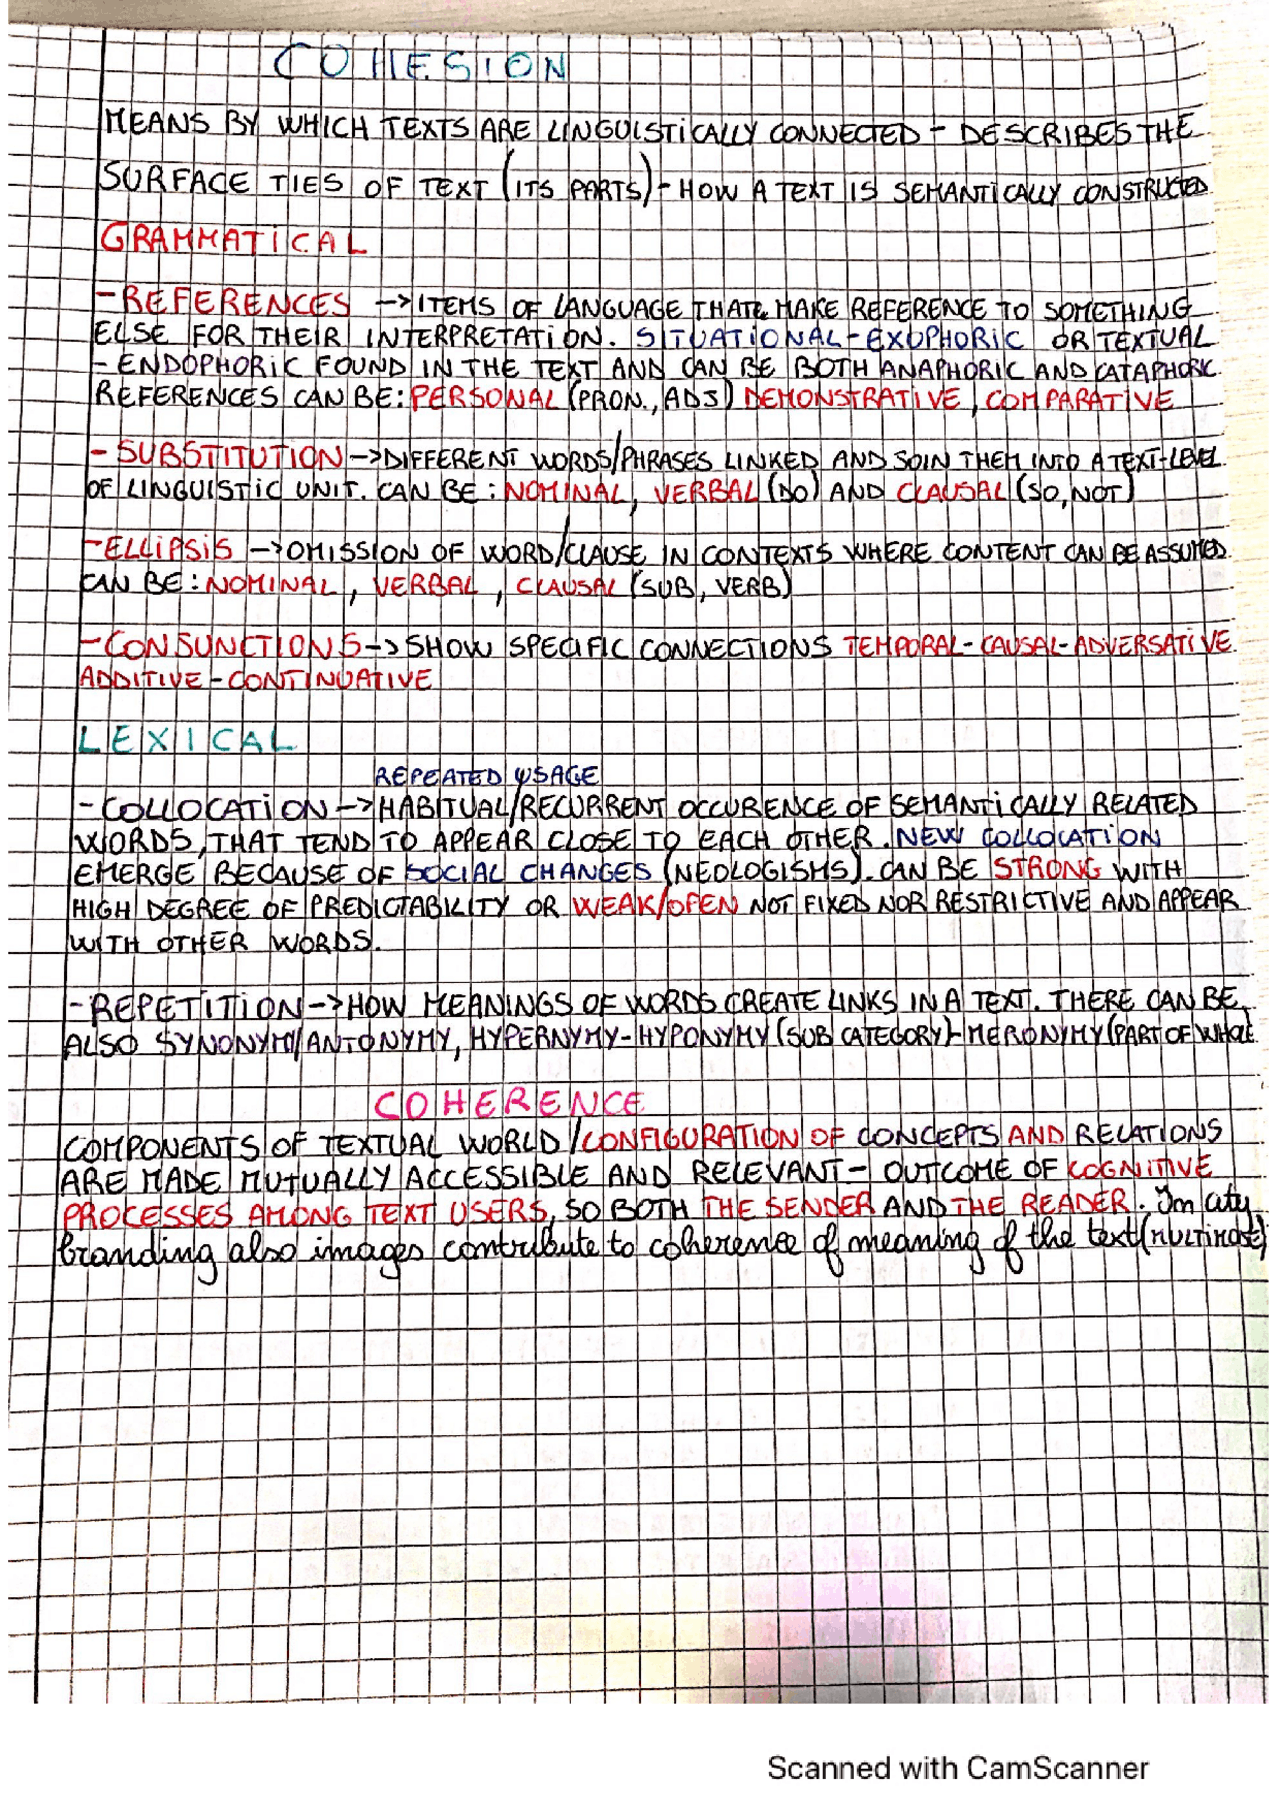 COHESION
MEANS BY WHICH TEXTS ARE LINGUISTICALLY CONNECTED - DESCRIBES THE
SURFACE TIES OF TEXT (ITS PARTS) - HOW A TEXT IS SEMANTICALLY CONSTRUCTED
GRAMMATICAL
- REFERENCES -> ITEMS OF LANGUAGE THAT MAKE REFERENCE TO SOMETHING
ELSE FOR THEIR INTERPRETATION. SITUATIONAL - EXOPHORIC OR TEXTUAL
- ENDOPHORIC FOUND IN THE TEXT AND CAN BE BOTH ANAPHORIC AND CATAPHORIC
REFERENCES CAN BE: PERSONAL (PRON., ADJ) DEMONSTRATIVE, COMPARATIVE
- SUBSTITUTION -> DIFFERENT WORDS/PHRASES LINKED AND JOIN THEM INTO A TEXT-LEVEL
OF LINGUISTIC UNIT. CAN BE: NOMINAL, VERBAL (DO) AND CLAUSAL (SO, NOT)
- ELLIPSIS -> OMISSION OF WORD/CLAUSE IN CONTEXTS WHERE CONTENT CAN BE ASSUMED
CAN BE: NOMINAL, VERBAL, CLAUSAL (SUB, VERB)
- CONJUNCTIONS -> SHOW SPECIFIC CONNECTIONS TEMPORAL - CAUSAL - ADVERSATIVE
ADDITIVE - CONTINUATIVE
LEXICAL
REPEATED USAGE
- COLLOCATION -> HABITUAL/RECURRENT OCCURENCE OF SEMANTICALLY RELATED
WORDS, THAT TEND TO APPEAR CLOSE TO EACH OTHER. NEW COLLOCATION
EMERGE BECAUSE OF SOCIAL CHANGES (NEOLOGISMS). CAN BE STRONG WITH
HIGH DEGREE OF PREDICTABILITY OR WEAK/OPEN NOT FIXED NOR RESTRICTIVE AND APPEAR
WITH OTHER WORDS.
- REPETITION -> HOW MEANINGS OF WORDS CREATE LINKS IN A TEXT. THERE CAN BE
ALSO SYNONYMY/ANTONYMY, HYPERNYMY - HYPONYMY (SUB CATEGORY) - MERONYMY (PART OF WHOLE
COHERENCE
COMPONENTS OF TEXTUAL WORLD / CONFIGURATION OF CONCEPTS AND RELATIONS
ARE MADE MUTUALLY ACCESSIBLE AND RELEVANT - OUTCOME OF COGNITIVE
PROCESSES AMONG TEXT USERS, SO BOTH THE SENDER AND THE READER. In city
branding also images contribute to coherence of meaning of the text (MULTIMODE)
Scanned with CamScanner